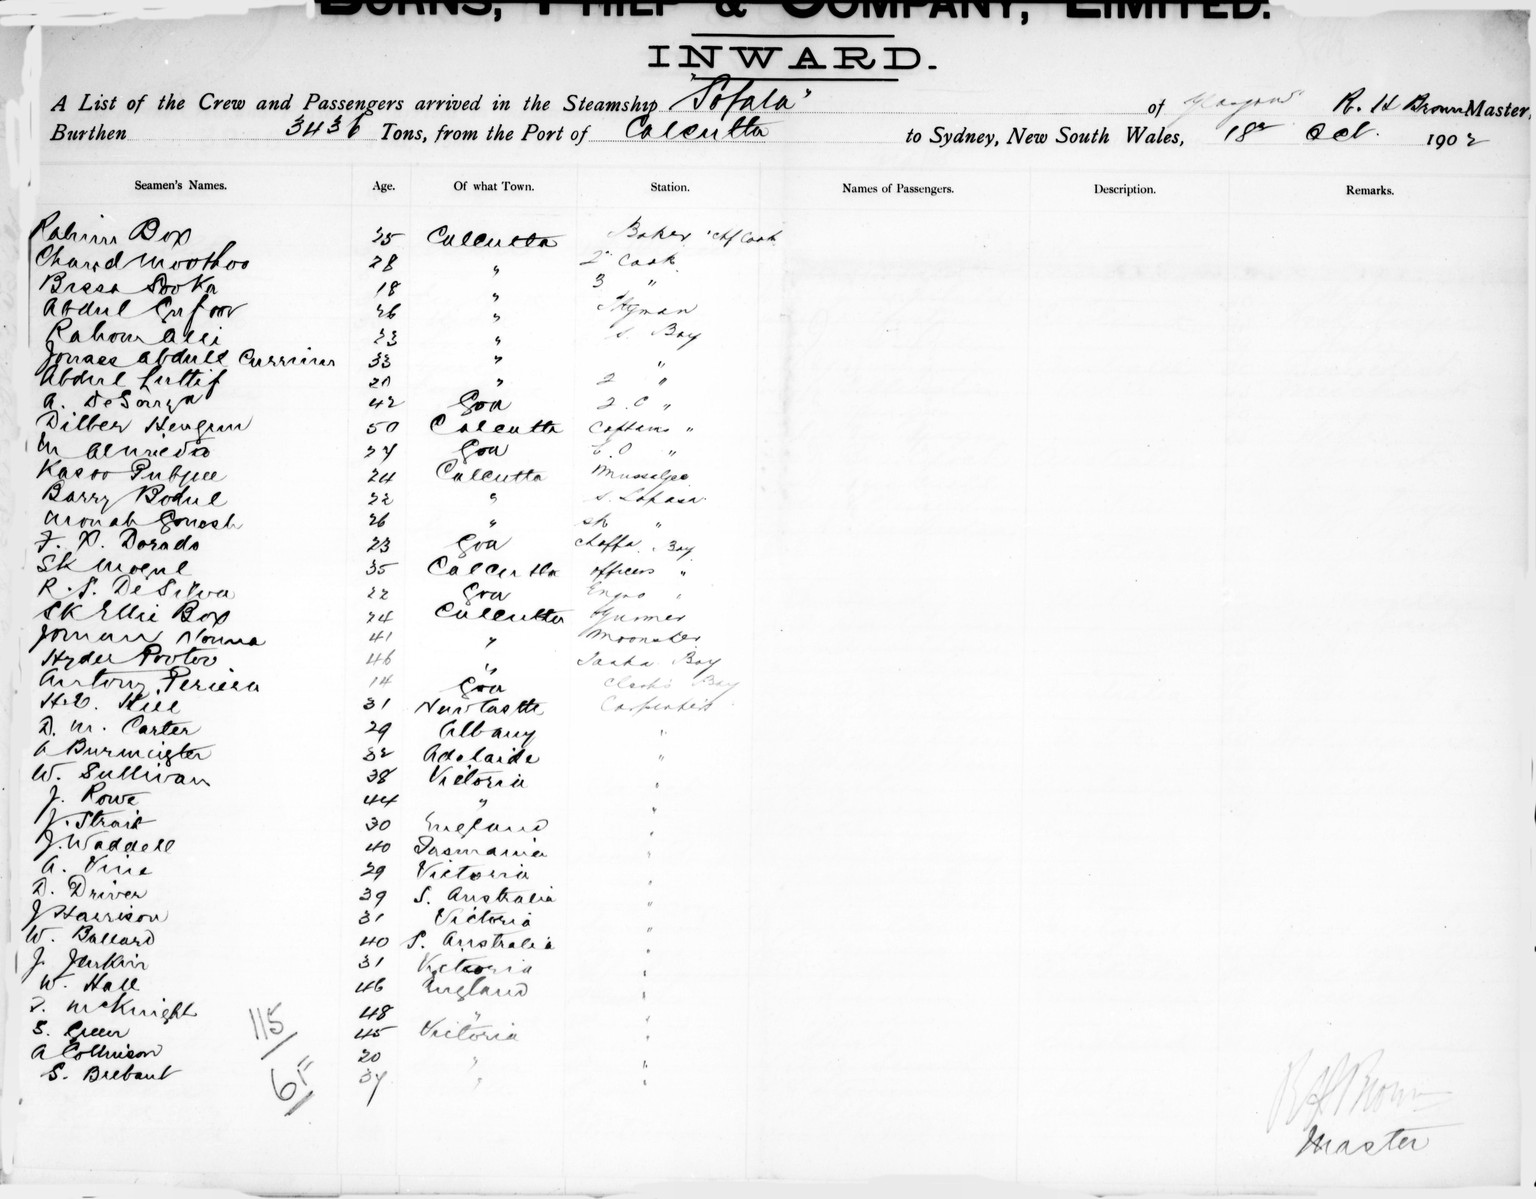 BURNS, PHILP & COMPANY, LIMITED.
INWARD.
A List of the Crew and Passengers arrived in the Steamship "Sofala" of Glasgow R. H Brown Master,
Burthen 3436 Tons, from the Port of Calcutta to Sydney, New South Wales, 18th Oct. 1902
Seamen's Names. Age. Of what Town. Station. Names of Passengers. Description. Remarks.
Rahim Box 35 Calcutta Baker Chf Cook
Chand Moothoo 28 " 2" Cook
Bressa Sooka 18 " 3 "
Abdul Gufoor 26 "
Rahom Alli 23 " S. Boy
Abdull Curriim 33 " "
Abdul Luttif 20 " 2 "
A. DeSouza 42 Goa 2.O "
Dilber 50 Calcutta Captains "
M Almieda 27 Goa "
Kasoo 24 Calcutta
Barry Bodul 22 " S. Topass
Gonesh 26 " "
F. X. Dorado 23 Goa Boy
SK Mogul 35 Calcutta officers "
R. S. DeSilva 22 Goa Engrs "
SK Ellie Box 24 Calcutta
Joman 41 "
Hyder 46 " Boy
Antony Periera 14 Goa Clerk's Boy
H.E. Hill 31 Newcastle Carpenters
D. M. Carter 29 Albany "
A Burmeister 32 Adelaide "
W. Sullivan 38 Victoria "
J. Rowe 44 " "
J. Strait 30 England "
J. Waddell 40 Tasmania "
A. Vine 29 Victoria "
D. Driver 39 S. Australia "
J Harrison 31 Victoria "
W. Ballard 40 S. Australia "
J. Jenkin 31 Victoria "
W. Hall 46 England "
McKnight 48 " "
S. Green 45 Victoria "
A Collinson 20 " "
S. Brebant 37 " "
115/
65/
R H Brown
Master